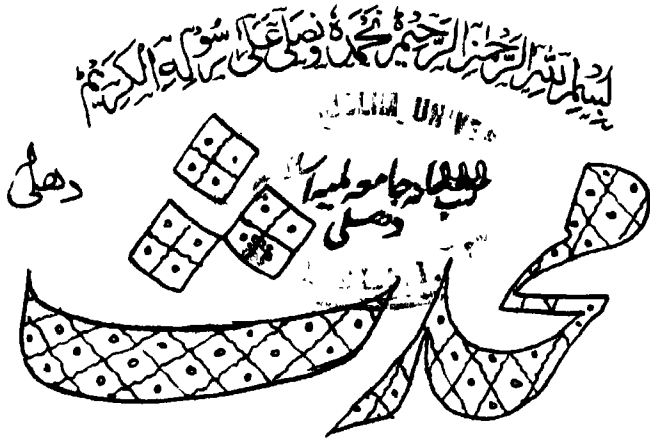 بسم اللہ الرحمٰن الرحیم نحمدہ و نصلی علی رسولہ الکریم
دہلی
جامعہ ملیہ
دہلی
محدث